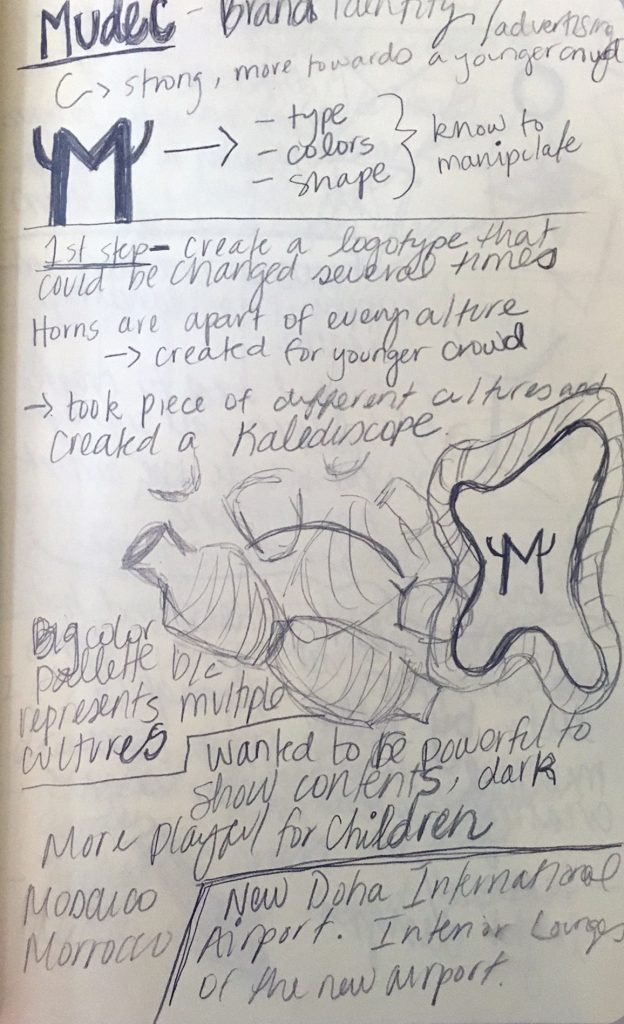 MUDEC - Brand Identity / advertising
↳ strong, more towards a younger crowd
M → - type
- colors
- shape } know to manipulate
1st step - create a logotype that
could be changed several times
Horns are apart of every culture
→ created for younger crowd
→ took piece of different cultures and
created a Kalediscope.
M
Big color
pallette b/c
represents multiple
cultures
wanted to be powerful to
show contents, dark
More playful for children
Morrocco
New Doha International
Airport. Interior Lounges
of the new airport.